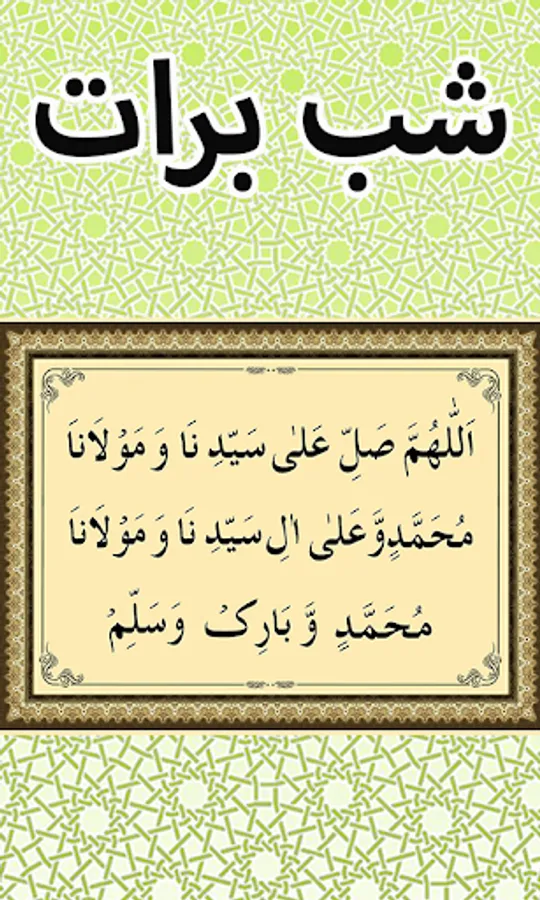 شب برات
اَللّٰهُمَّ صَلِّ عَلٰى سَيّدِ نَا وَ مَوْلَانَا
مُحَمَّدٍوَّ عَلٰى اٰلِ سَيّدِ نَا وَ مَوْلَانَا
مُحَمَّدٍ وَّ بَارِكْ وَسَلِّمْ